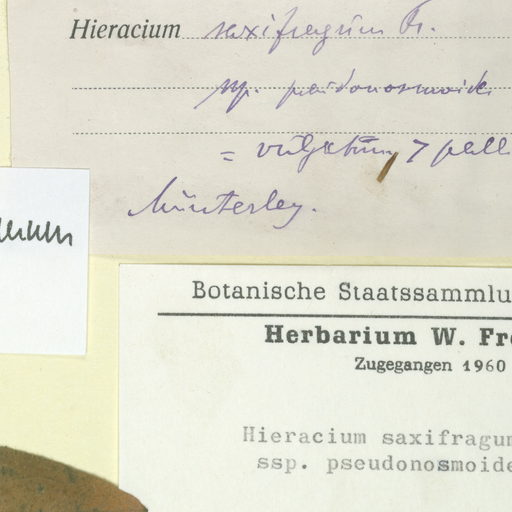 Hieracium saxifragum Fr.
ssp. pseudonosmoides
= vulgatum > pall
Münterley.
Botanische Staatssammlu
Herbarium W. Fre
Zugegangen 1960
Hieracium saxifragum
ssp. pseudonosmoide